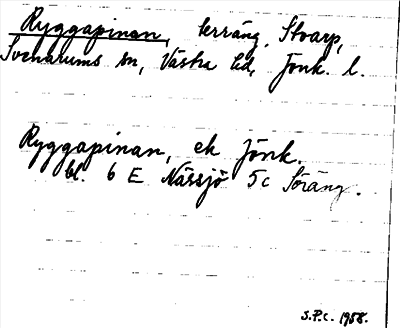 Ryggapinan, terräng, Stoarp,
Svenarums sn, Västra hd, Jönk. l.
Ryggapinan, ek Jönk.
bl. 6 E Nässjö 5c Söräng.
S.P.C. 1958.